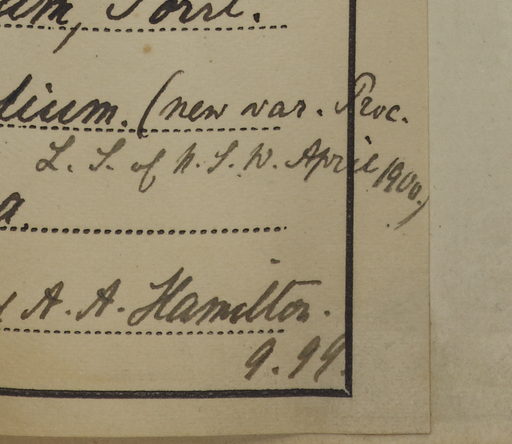 um, Torr.
lium. (new var. Proc.
L. S. of N. S. W. April 1900.)
a.
A. A. Hamilton.
9.99.